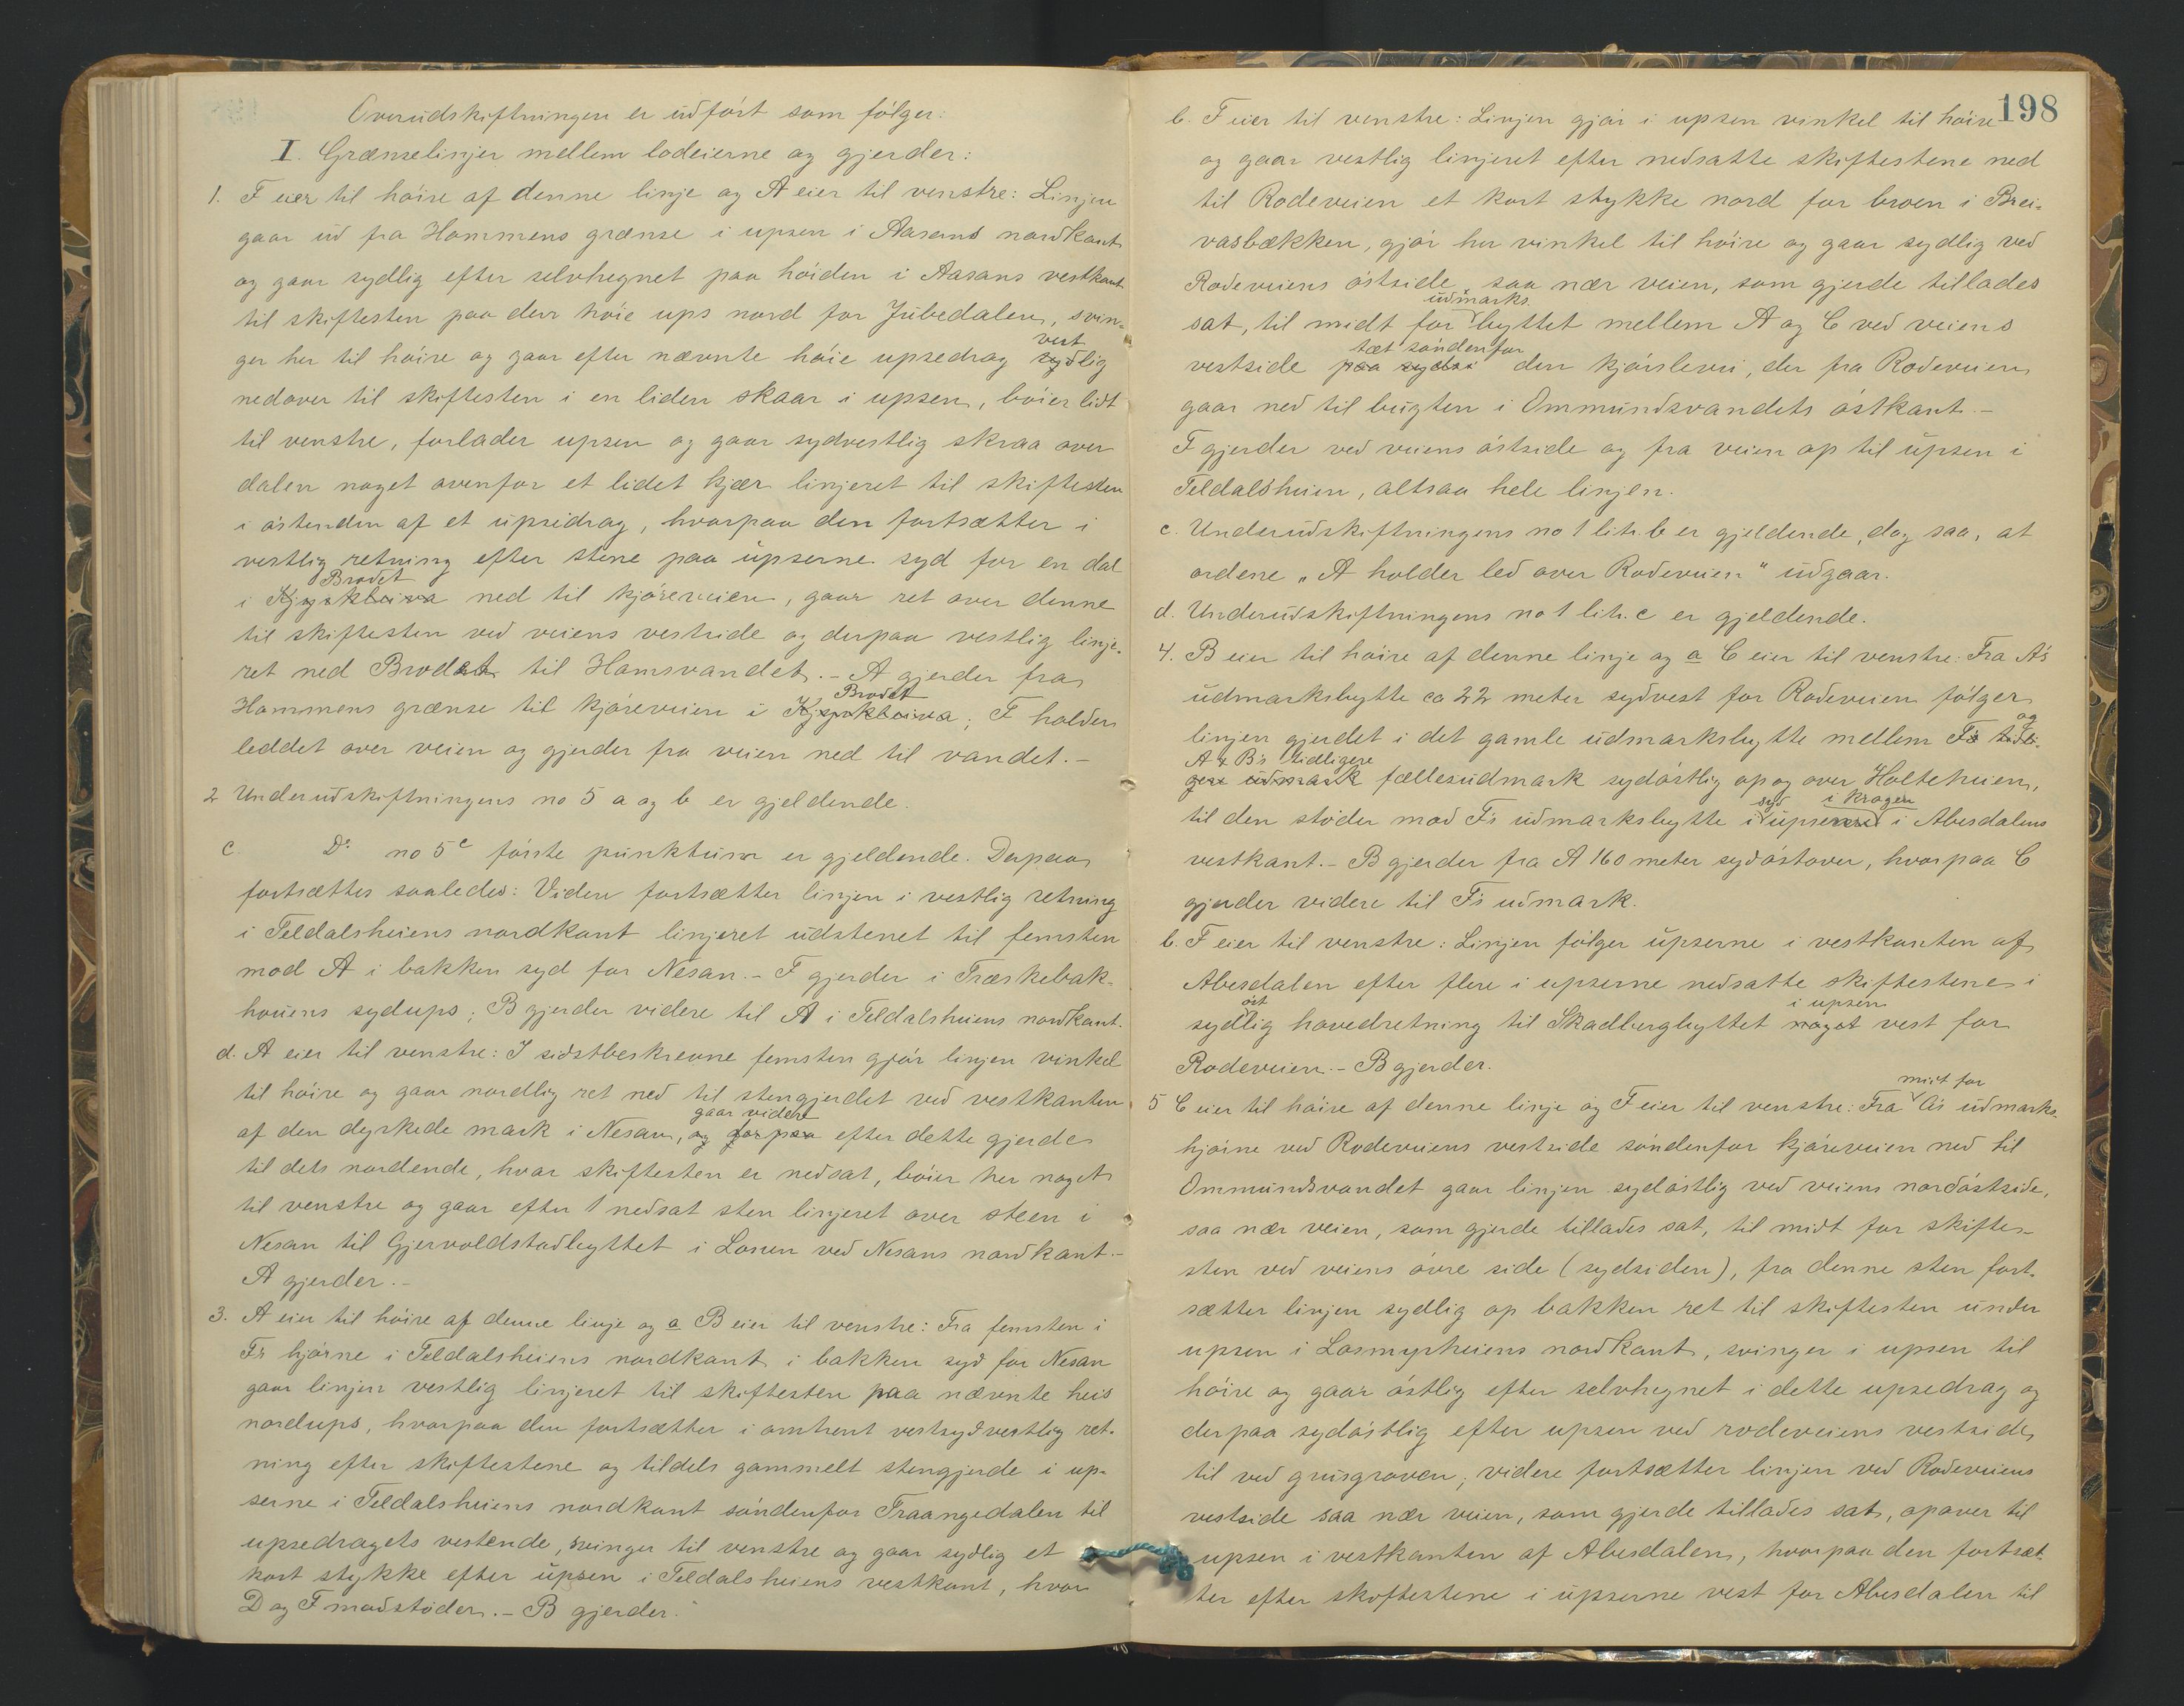 Overudskiftningen er udført som følger:
I. Grænselinjer mellem lodeierne og gjerder:
1. F eier til høire af denne linje og A eier til venstre: Linjen
gaar ud fra Hammens grænse i upsen i Aasans nordkant
og gaar sydlig efter selvhegnet paa høiden i Aasans vestkant
til skiftesten paa den høie ups nord for Jubedalen, svin-
ger her til høire og gaar efter nævnte høie upsedrag vestlig
nedover til skiftesten i en liden skaar i upsen, bøier lidt
til venstre, forlader upsen og gaar sydvestlig skraa over
dalen noget ovenfor et lidet kjær linjeret til skiftesten
i østenden af et upsedrag, hvorpaa den fortsætter i
vestlig retning efter stene paa upserne syd for en dal
i Brodet ned til kjøreveien, gaar ret over denne
til skiftesten ved veiens vestside og derpaa vestlig linje-
ret ned Brodet til Hamsvandet. – A gjerder fra
Hammens grænse til kjøreveien i Brodet; F holder
leddet over veien og gjerder fra veien ned til vandet. –
2 Underudskiftningens no 5 a og b er gjeldende.
c. Do no 5c første punktum er gjeldende. Derpaa
fortsættes saaledes: Videre fortsætter linjen i vestlig retning
i Teldalsheiens nordkant linjeret udstenet til femsten
mod A i bakken syd for Nesan. – F gjerder i Træskebak-
houens sydups; B gjerder videre til A i Teldalsheiens nordkant.
d. A eier til venstre: I sidstbeskrevne femsten gjør linjen vinkel
til høire og gaar nordlig ret ned til stengjerdet ved vestkanten
af den dyrkede mark i Nesan, gaar videre efter dette gjerde
til dets nordende, hvor skiftesten er nedsat, bøier her noget
til venstre og gaar efter 1 nedsat sten linjeret over steen i
Nesan til Gjervoldstadbyttet i Lonen ved Nesans nordkant. –
A gjerder. –
3. A eier til høire af denne linje og a B eier til venstre: Fra femsten i
F's hjørne i Teldalsheiens nordkant i bakken syd for Nesan
gaar linjen vestlig linjeret til skiftesten paa nævnte heis
nordups, hvorpaa den fortsætter i omtrent vestsydvestlig ret-
ning efter skiftestene og tildels gammelt stengjerde i up-
serne i Teldalsheiens nordkant søndenfor Traangedalen til
upsedragets vestende, svinger til venstre og gaar sydlig et
kort stykke efter upsen i Teldalsheiens vestkant, hvor
D og F modstøder. – B gjerder.
198
b. F eier til venstre: Linjen gjør i upsen vinkel til høire
og gaar vestlig linjeret efter nedsatte skiftestene ned
til Rodeveien et kort stykke nord for broen i Brei-
vasbækken, gjør her vinkel til høire og gaar sydlig ved
Rodeveiens østside, saa nær veien, som gjerde tillades
sat, til midt for udmarks byttet mellem A og C ved veiens
vestside tæt søndenfor den kjørslevei, der fra Rodeveien
gaar ned til bugten i Ommundsvandets østkant. –
F gjerder ved veiens østside og fra veien op til upsen i
Teldalsheien, altsaa hele linjen.
c. Underudskiftningens no 1 litr. b er gjeldende, dog saa, at
ordene „A holder led over Rodeveien" udgaar.
d. Underudskiftningens no 1 litr. c er gjeldende.
4. B eier til høire af denne linje og a C eier til venstre: Fra A's
udmarksbytte ca 22 meter sydvest for Rodeveien følger
linjen gjerdet i det gamle udmarksbytte mellem F's og
A & B's tidligere fællesudmark sydøstlig op og over Holteheien,
til den støder mod F's udmarksbytte i sydupsen i krogen i Abesdalens
vestkant. – B gjerder fra A 160 meter sydøstover, hvorpaa C
gjerder videre til F's udmark.
b. F eier til venstre: Linjen følger upserne i vestkanten af
Abesdalen efter flere i upserne nedsatte skiftestene i
sydøstlig hovedretning til Skadbergbyttet i upsen vest for
Rodeveien. – B gjerder.
5 C eier til høire af denne linje og F eier til venstre: Fra midt for A's udmarks-
hjørne ved Rodeveiens vestside søndenfor kjøreveien ned til
Ommundsvandet gaar linjen sydøstlig ved veiens nordøstside,
saa nær veien, som gjerde tillades sat, til midt for skifte-
sten ved veiens øvre side (sydsiden), fra denne sten fort-
sætter linjen sydlig op bakken ret til skiftesten under
upsen i Losmyrheiens nordkant, svinger i upsen til
høire og gaar østlig efter selvhegnet i dette upsedrag og
derpaa sydøstlig efter upsen ved rodeveiens vestside
til ved grusgraven; videre fortsætter linjen ved Rodeveiens
vestside saa nær veien, som gjerde tillades sat, opover til
upsen i vestkanten af Abesdalen, hvorpaa den fortsæt-
ter efter skiftestene i upserne vest for Abesdalen til